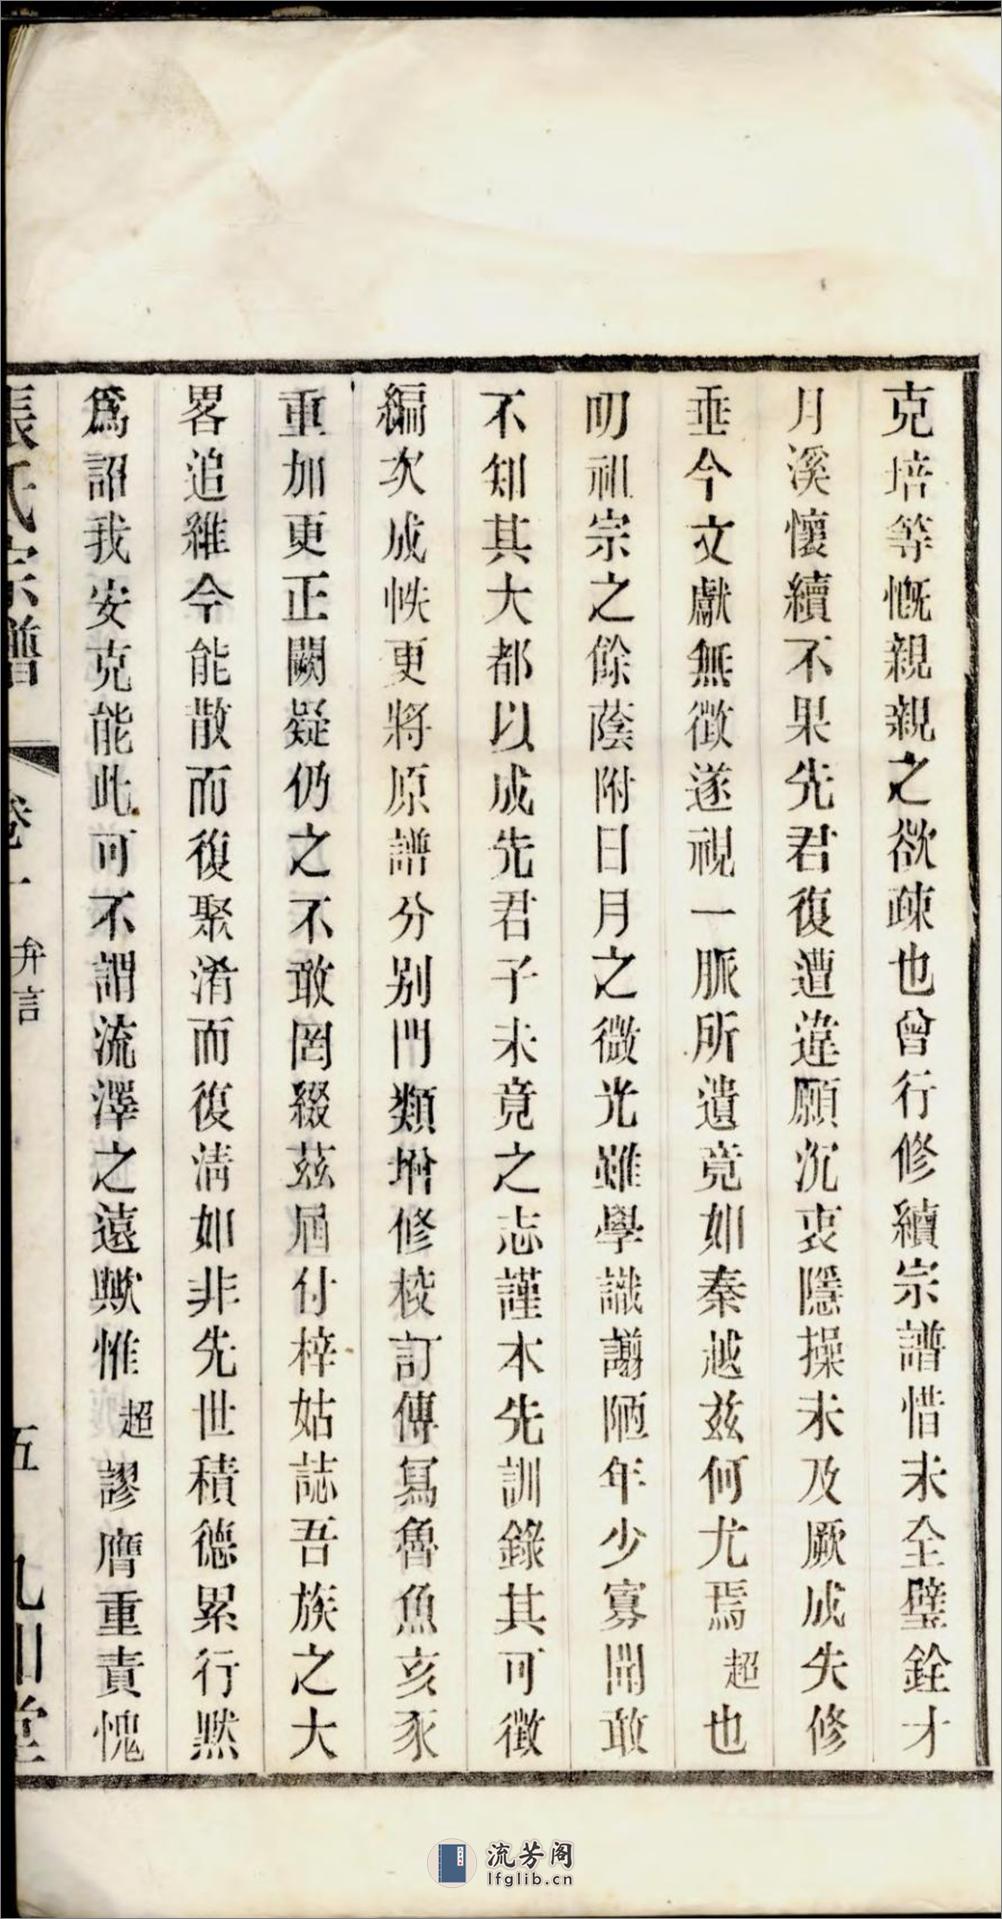 克培等慨親親之欲疎也曾行修續宗譜惜未全璧銓才
月溪懷續不果先君復遭違願沉衷隱操未及厥成失修
垂今文獻無徵遂視一脈所遺竟如秦越茲何尤焉超也
明祖宗之餘蔭附日月之微光雖學識謭陋年少寡聞敢
不知其大都以成先君子未竟之志謹本先訓錄其可徵
編次成帙更將原譜分別門類增修校訂傳寫魯魚亥豕
重加更正闕疑仍之不敢罔綴茲届付梓姑誌吾族之大
畧追維今能散而復聚淆而復清如非先世積德累行默
爲詔我安克能此可不謂流澤之遠歟惟超謬膺重責愧
張氏宗譜 卷一 弁言 五
流芳阁
lfglib.cn